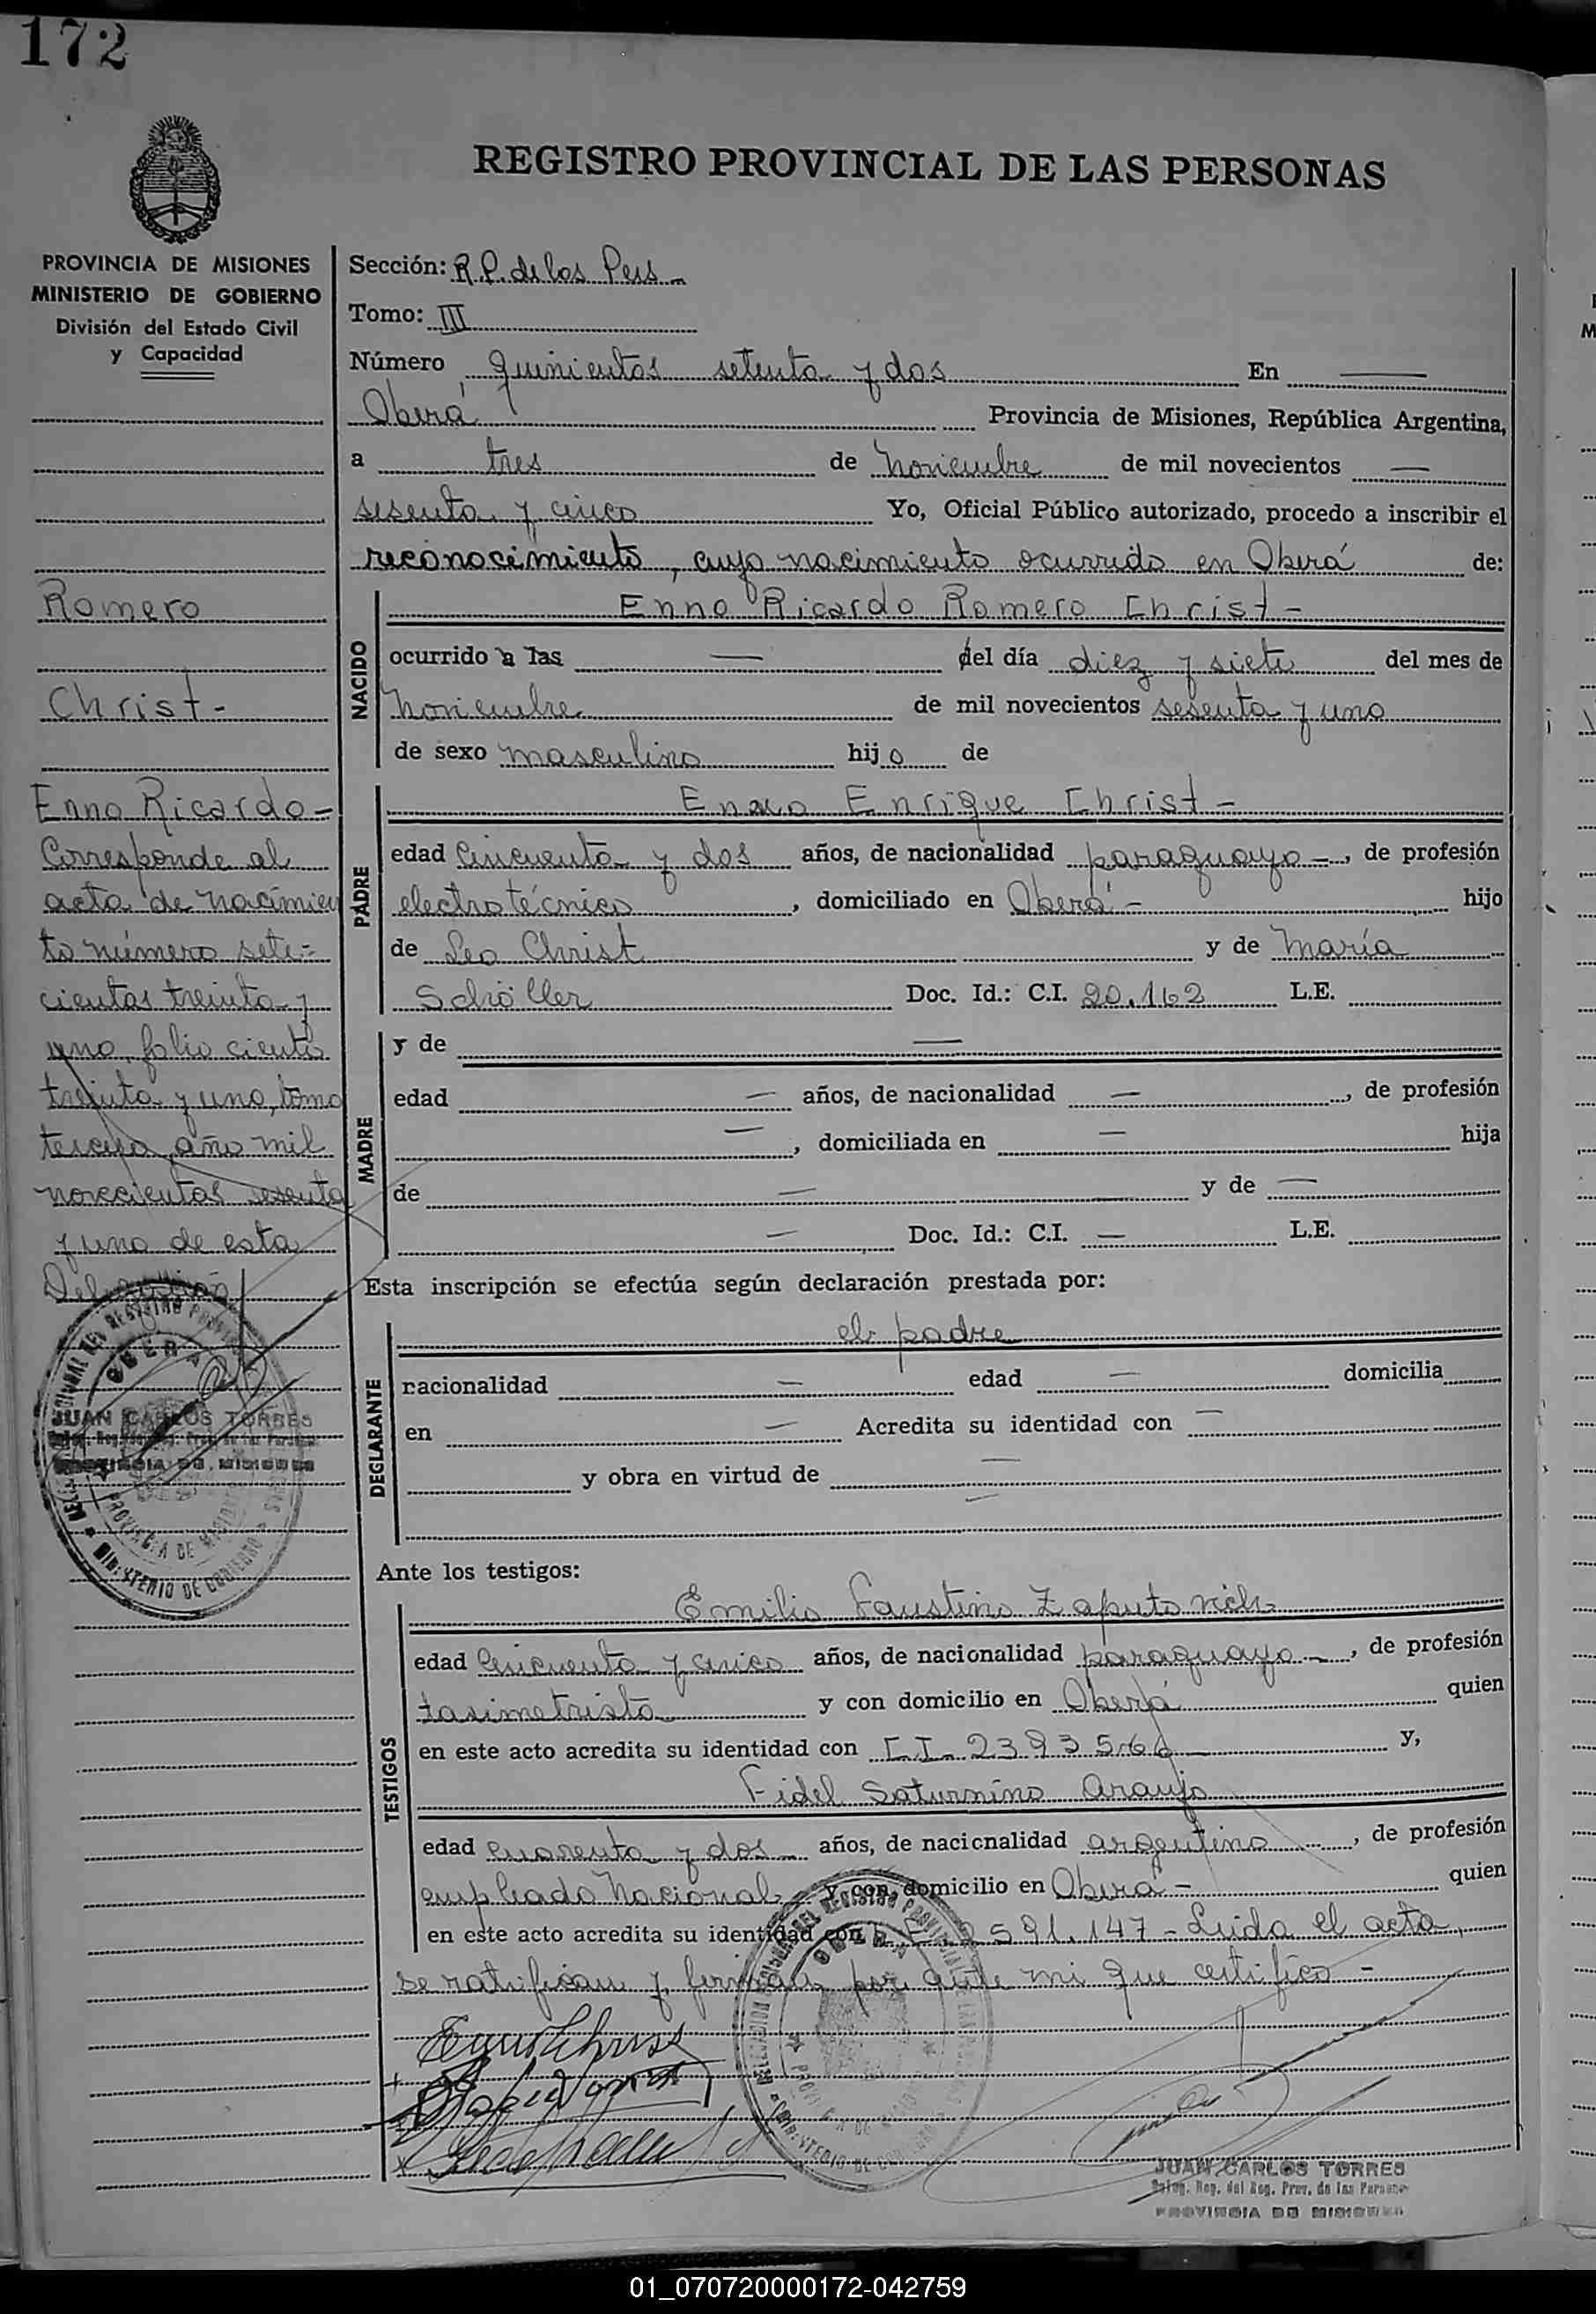 172
REGISTRO PROVINCIAL DE LAS PERSONAS
PROVINCIA DE MISIONES
MINISTERIO DE GOBIERNO
División del Estado Civil
y Capacidad
Romero
Christ -
Enno Ricardo -
Corresponde al
acta de nacimien
to número sete-
cientos treinta y
uno, folio ciento
treinta y uno, tomo
tercero, año mil
novecientos sesenta
y uno de esta
Delegación
JUAN CARLOS TORRES
PROVINCIA DE MISIONES
Sección: R.P. de las Pers -
Tomo: III
Número quinientos setenta y dos En —
Oberá Provincia de Misiones, República Argentina,
a tres de Noviembre de mil novecientos —
sesenta y cinco Yo, Oficial Público autorizado, procedo a inscribir el
reconocimiento, cuyo nacimiento ocurrido en Oberá de:
NACIDO
Enno Ricardo Romero Christ -
ocurrido a las — del día diez y siete del mes de
Noviembre de mil novecientos sesenta y uno
de sexo masculino hijo de
PADRE
Enno Enrique Christ -
edad Cincuenta y dos años, de nacionalidad paraguayo -, de profesión
electrotécnico, domiciliado en Oberá - hijo
de Leo Christ y de María
Schöller Doc. Id.: C.I. 20.162 L.E.
MADRE
y de —
edad — años, de nacionalidad —, de profesión
—, domiciliada en — hija
de — y de —
— Doc. Id.: C.I. — L.E.
Esta inscripción se efectúa según declaración prestada por:
DEGLARANTE
el padre
racionalidad — edad — domicilia
en — Acredita su identidad con —
y obra en virtud de —
—
Ante los testigos:
TESTIGOS
Emilio Faustino Zaputovich
edad Cincuenta y cinco años, de nacionalidad paraguayo -, de profesión
taximetrista y con domicilio en Oberá quien
en este acto acredita su identidad con C.I. 2393566 y,
Fidel Saturnino Araujo
edad cuarenta y dos - años, de nacionalidad argentino -, de profesión
empleado Nacional y con domicilio en Oberá - quien
en este acto acredita su identidad con 2591.147 - Leída el acta,
se ratifican y firman por ante mi que certifico -
JUAN CARLOS TORRES
Deleg. Reg. del Reg. Prov. de las Personas
PROVINCIA DE MISIONES
01_070720000172-042759